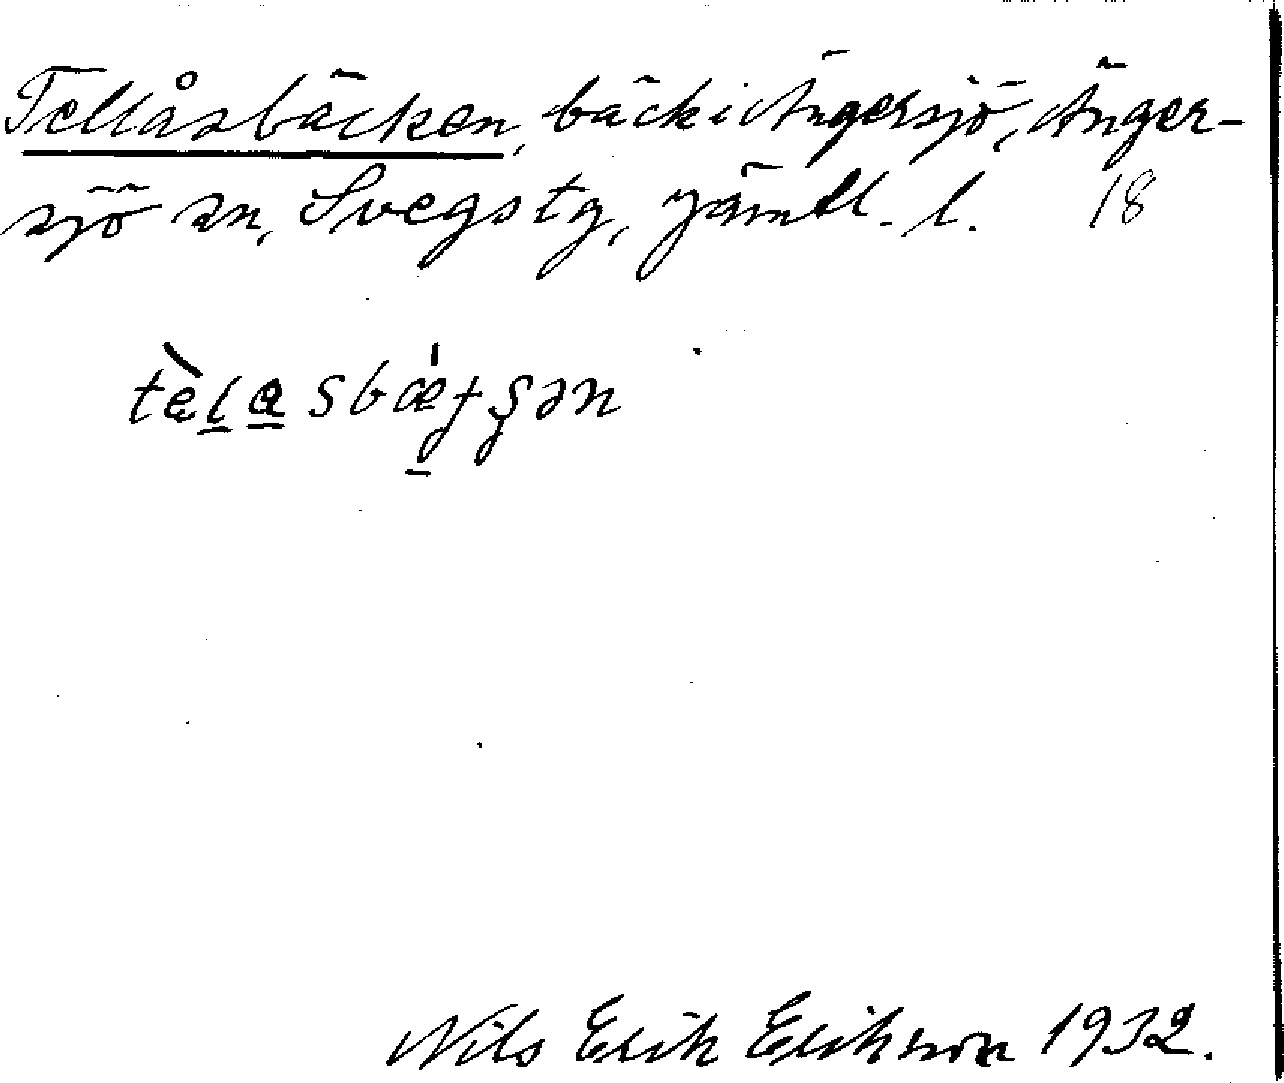 Tellåsbäcken, bäck i Ängersjö, Änger-
sjö sn, Svegs tg, Jämtl. l. 18
Nils Erik Erikson 1932.